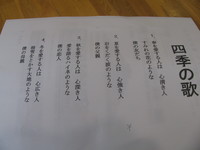 四季の歌
一、春を愛する人は 心清き人
すみれの花のような
僕の友だち
二、夏を愛する人は 心強き人
岩をくだく波のような
僕の父親
三、秋を愛する人は 心深き人
愛を語るハイネのような
僕の恋人
四、冬を愛する人は 心広き人
根雪をとかす大地のような
僕の母親